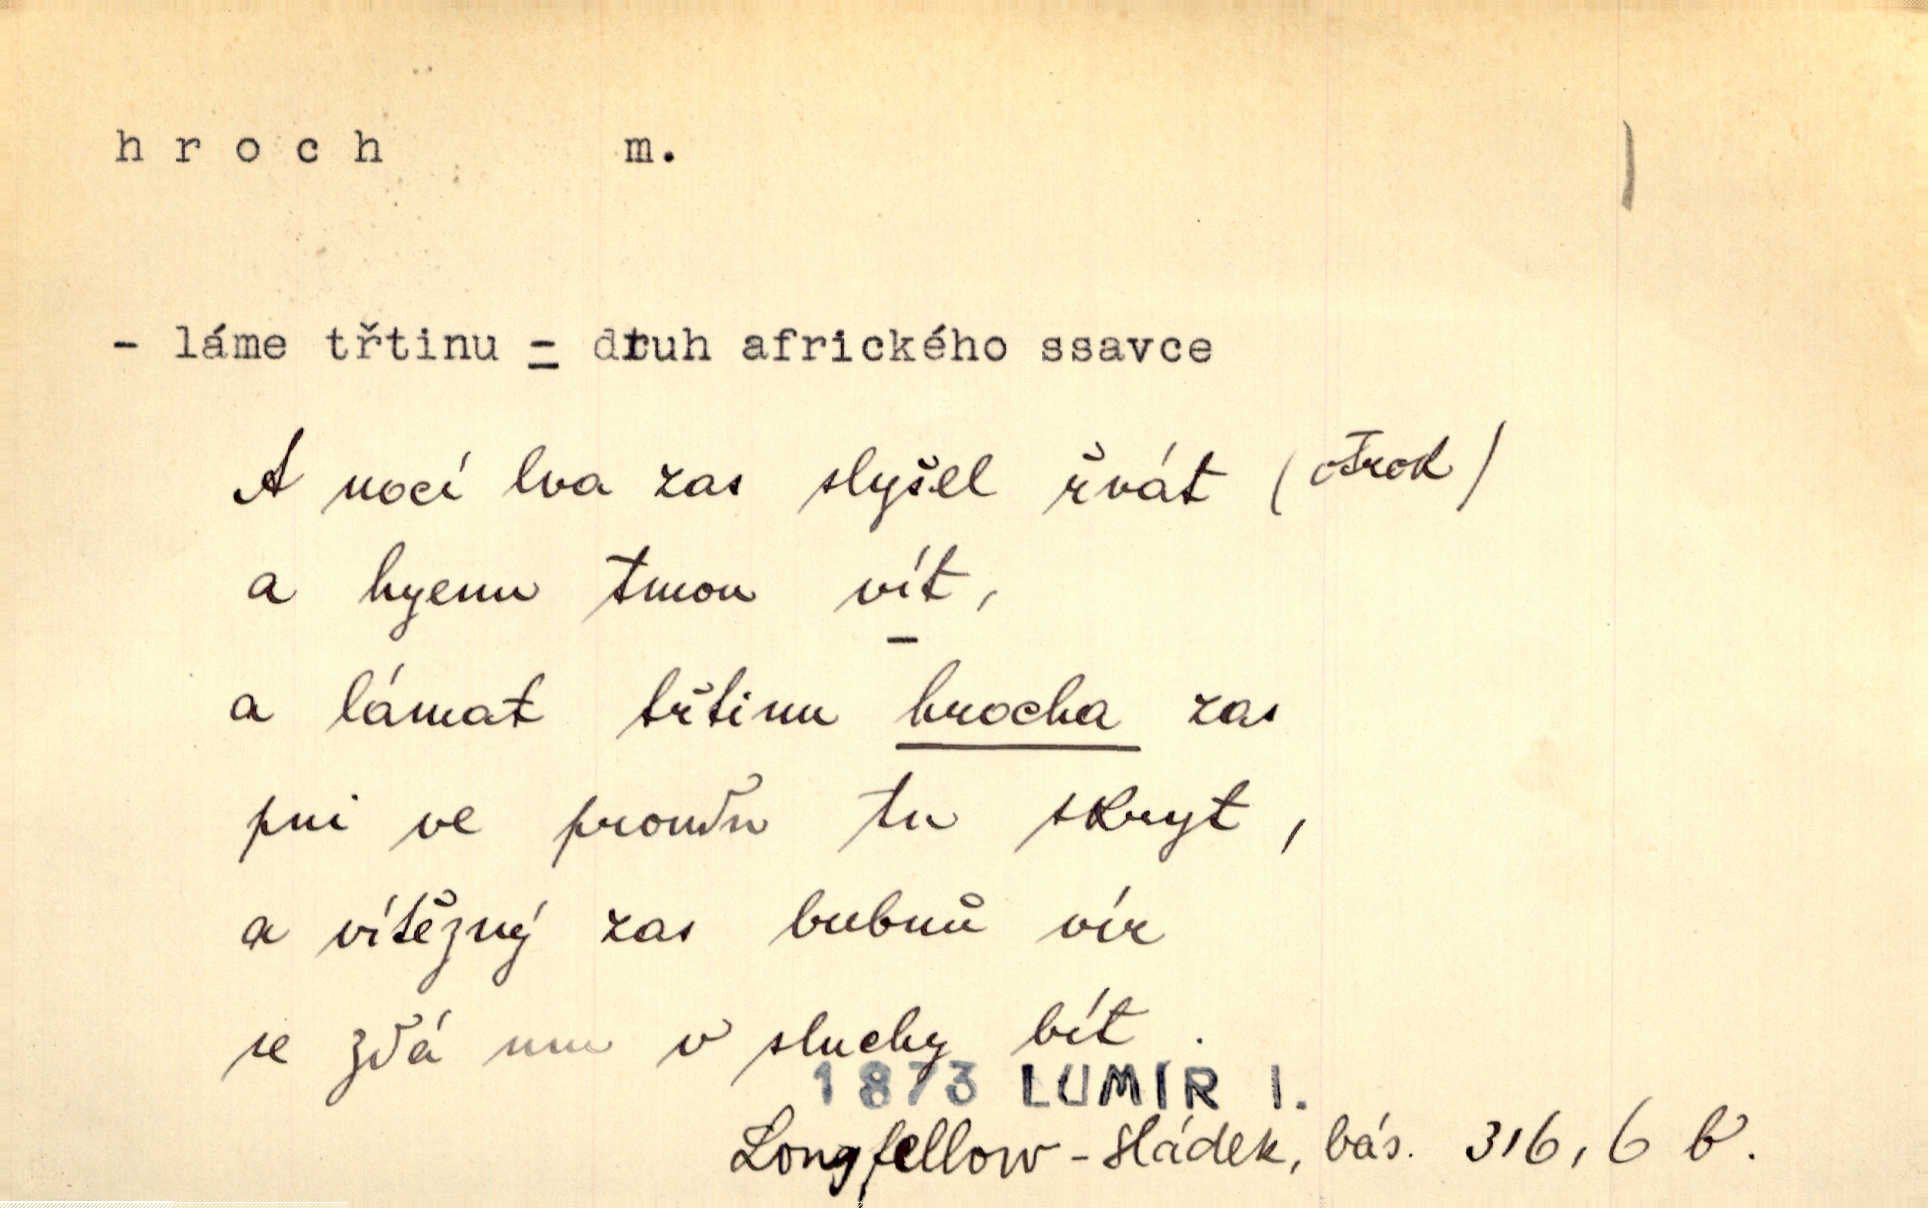 hroch m.
- láme třtinu = druh afrického ssavce
A nocí lva zas slyšel řvát (otrok)
a hyenu tmou vít,
a lámat třtinu hrocha zas
pni ve proudu tu skryt,
a vítězný zas bubnů vír
se zdá mu v sluchy bít.
1873 LUMÍR I.
Longfellow - Sládek, bás. 316, 6 b.